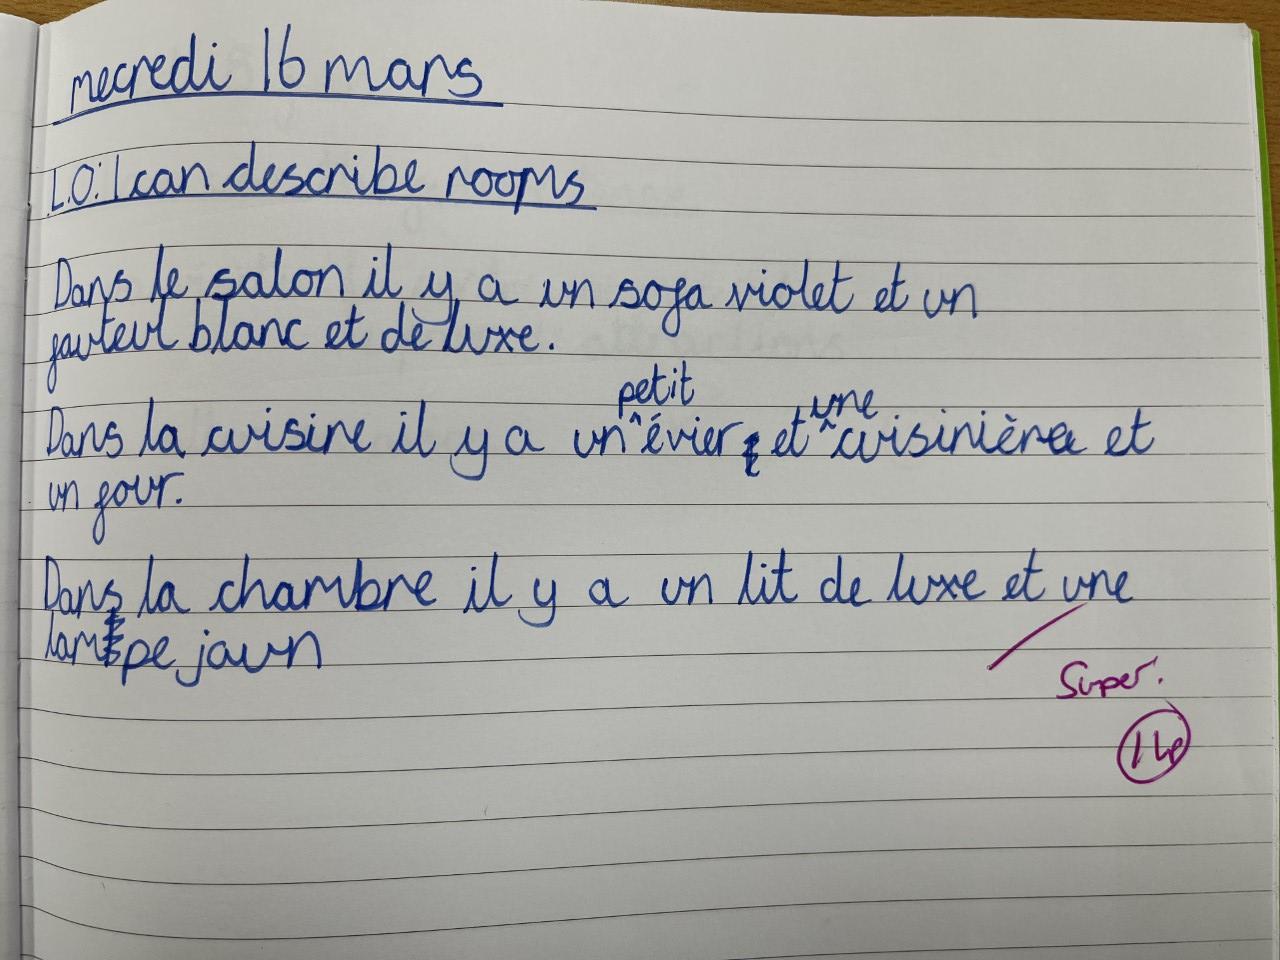 mecredi 16 mars
L.O: I can describe rooms
Dans le salon il y a un sofa violet et un
fauteuil blanc et de luxe.
Dans la cuisine il y a un petit évier et une cuisinière et
un four.
Dans la chambre il y a un lit de luxe et une
lampe jaun
Super.